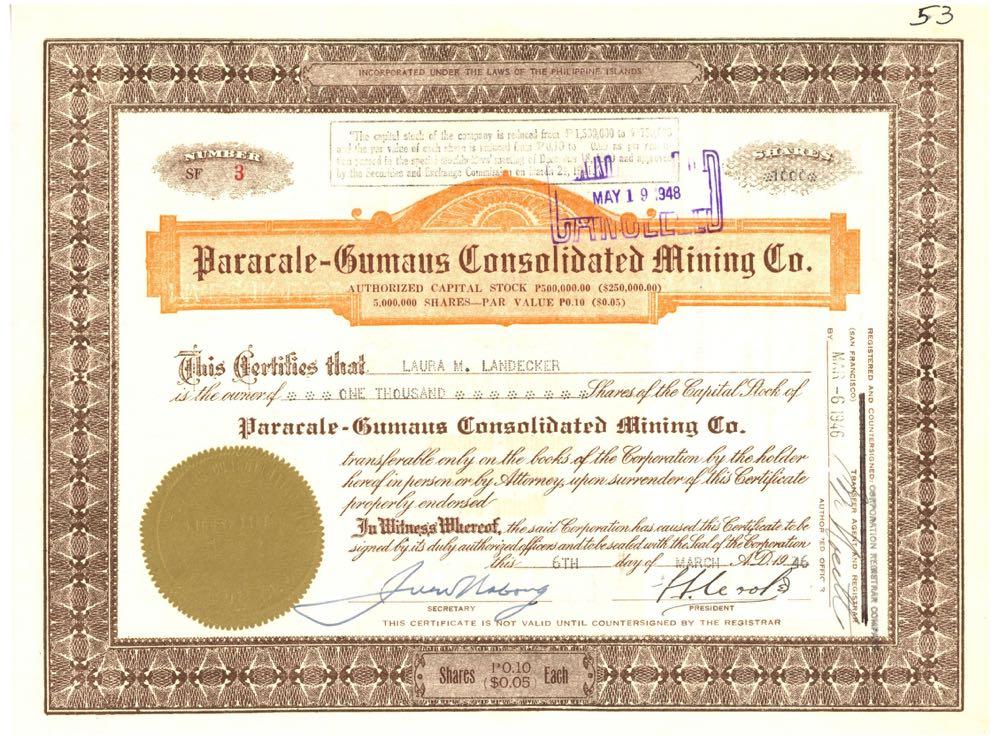 53
INCORPORATED UNDER THE LAWS OF THE PHILIPPINE ISLANDS
"The capital stock of the company is reduced from ₱1,500,000 to
and the par value of each share is reduced from ₱0.10 to as per
passed in the special stockholders' meeting of and approved
by the Securities and Exchange Commission on March
NUMBER
SF 3
SHARES
*1000*
MAY 19 1948
CANCELLED
Paracale-Gumaus Consolidated Mining Co.
AUTHORIZED CAPITAL STOCK P500,000.00 ($250,000.00)
5,000,000 SHARES—PAR VALUE P0.10 ($0.05)
This Certifies that LAURA M. LANDECKER
is the owner of * * * ONE THOUSAND * * * * * * * * Shares of the Capital Stock of
Paracale-Gumaus Consolidated Mining Co.
transferable only on the books of the Corporation by the holder
hereof in person or by Attorney, upon surrender of this Certificate
properly endorsed
In Witness Whereof, the said Corporation has caused this Certificate to be
signed by its duly authorized officers and to be sealed with the Seal of the Corporation
this 6TH day of MARCH A.D. 1946
SECRETARY
PRESIDENT
THIS CERTIFICATE IS NOT VALID UNTIL COUNTERSIGNED BY THE REGISTRAR
REGISTERED AND COUNTERSIGNED: CORPORATION REGISTRAR
(SAN FRANCISCO) TRANSFER AGENT AND REGISTRAR
BY MAR -6 1946
AUTHORIZED OFFICER
Shares ₱0.10 Each
($0.05)